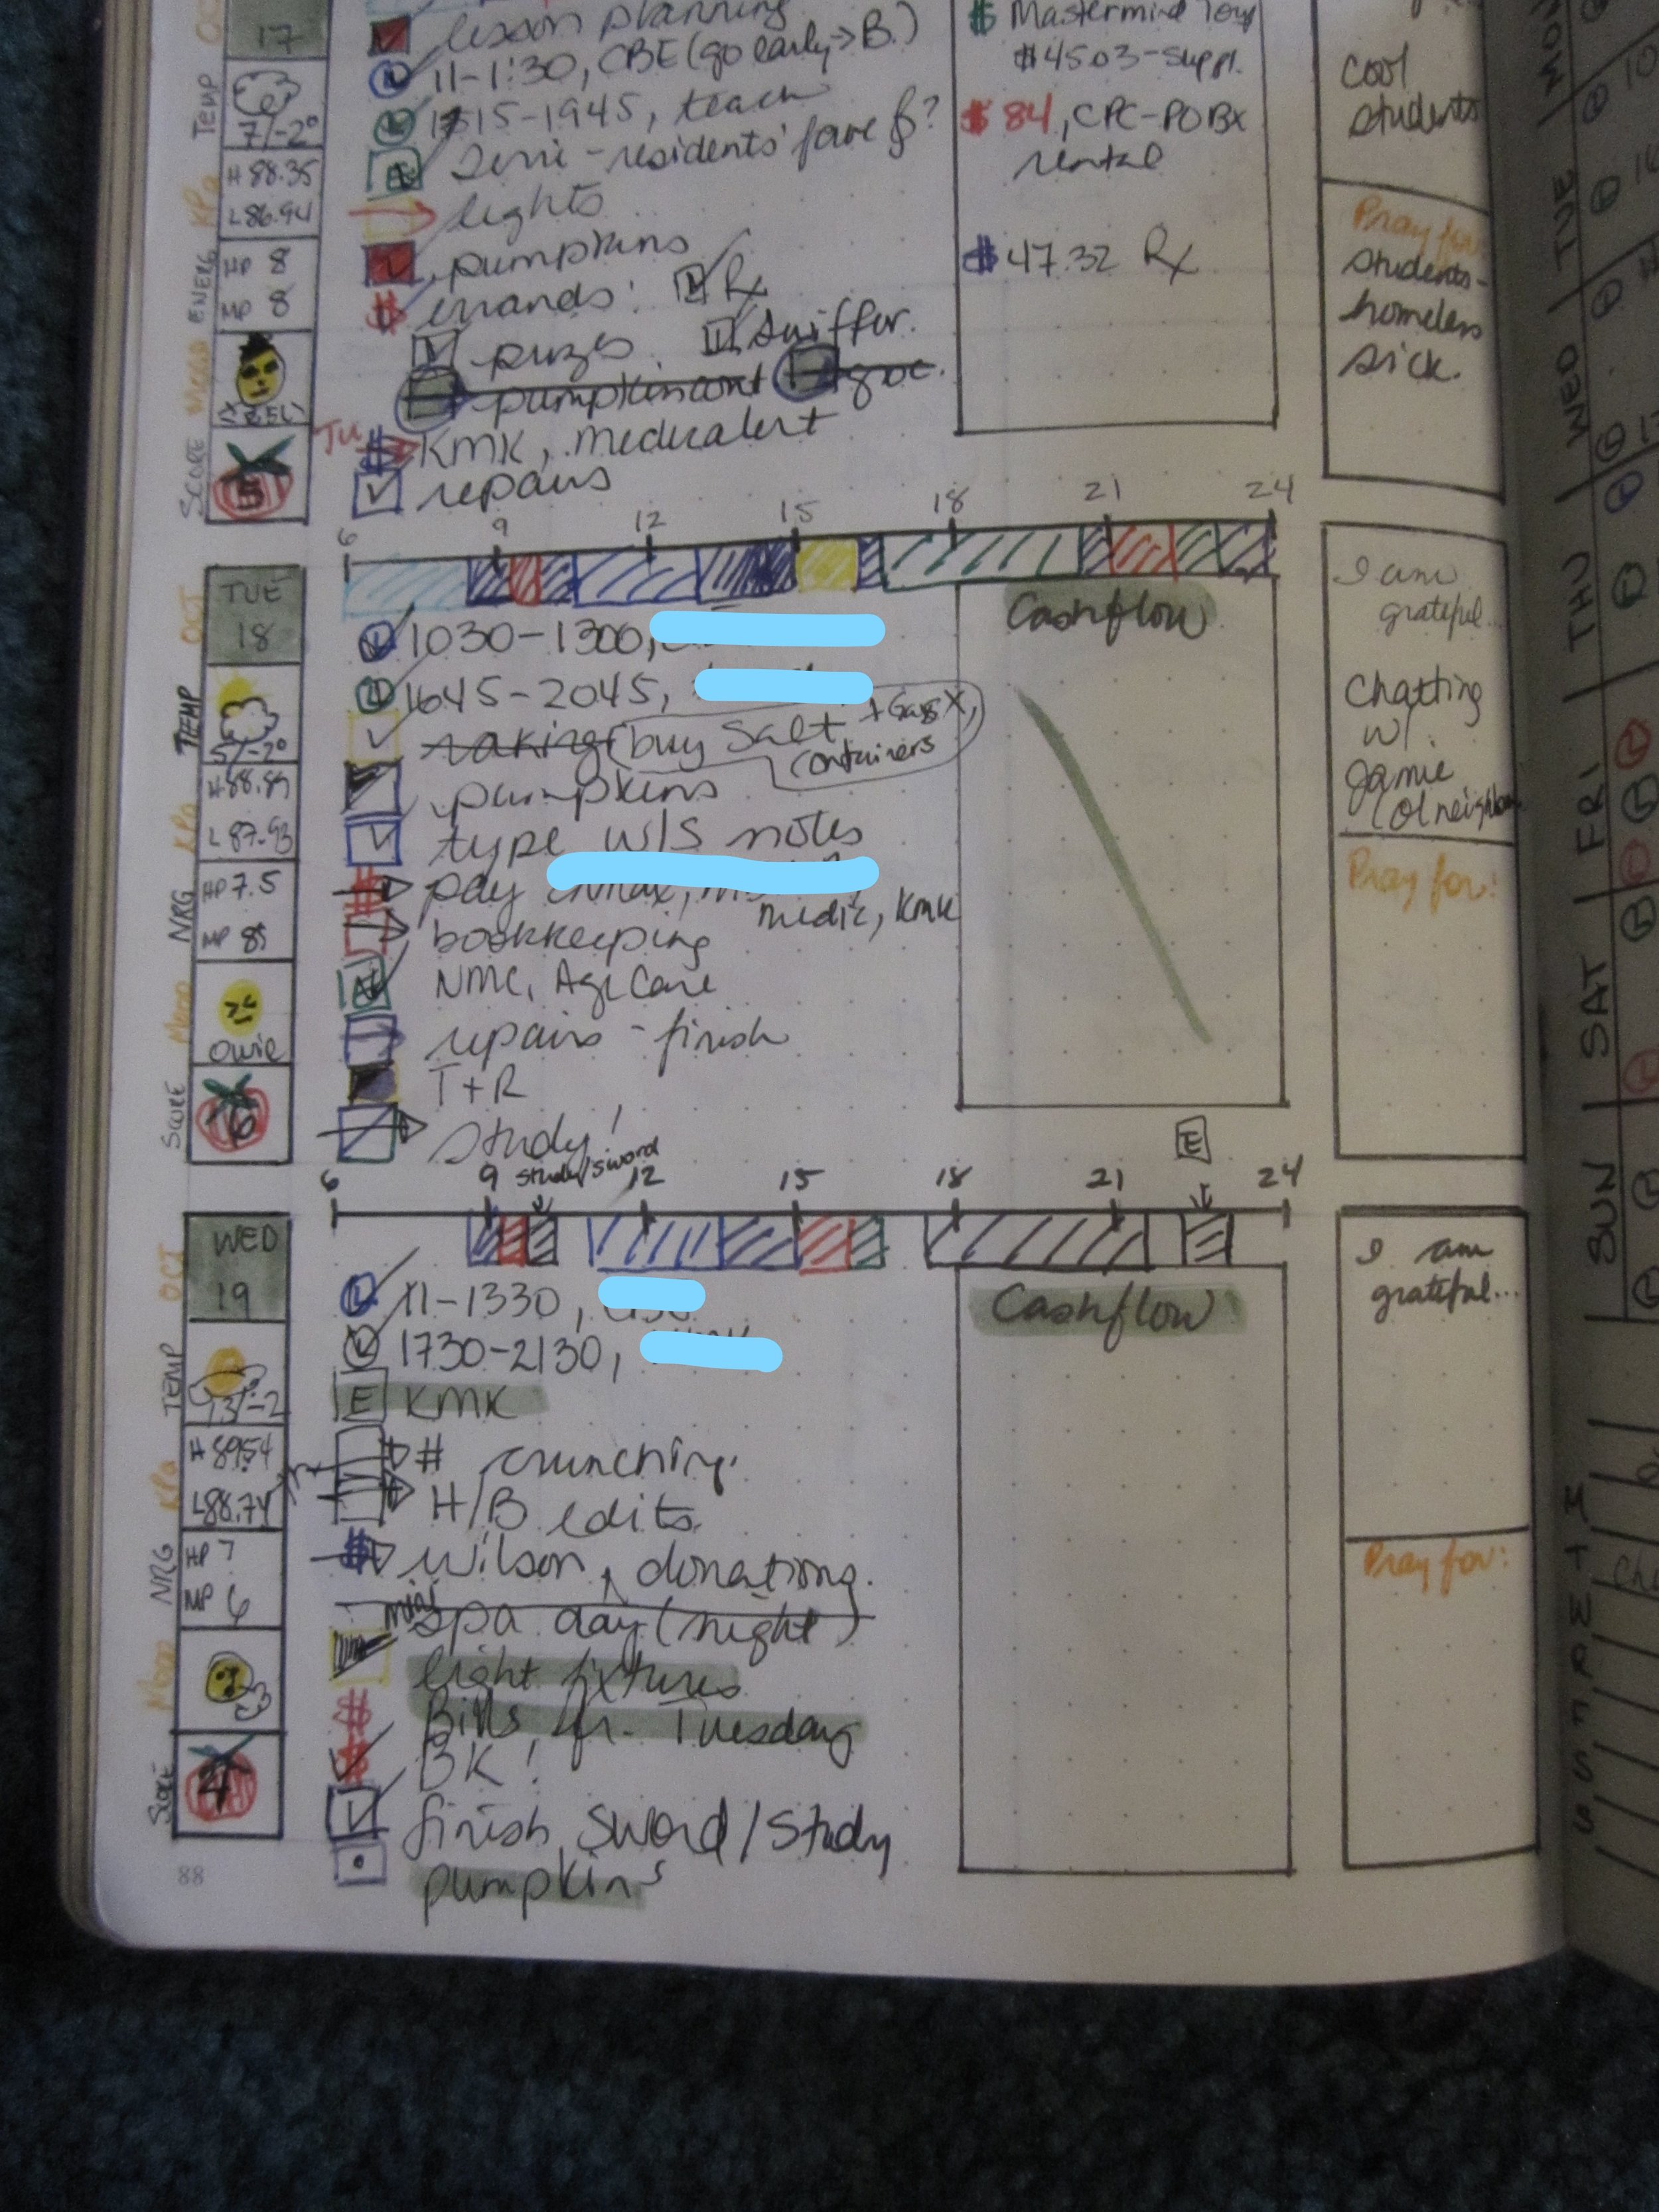 OCT
17
TEMP
7/-2°
KPa
H 88.35
L 86.94
ENERG
HP 8
MP 8
MOOD
SCORE
5
lesson planning
11-1:30, CBE (go early→B.)
1515-1945, teach
residents' fave
lights
pumpkins
errands: Rx
prizes
Swiffer.
pumpkin cont
TU
KMK, medicalert
repairs
$ Mastermind Toys
$45.03-suppl.
$ 84, CPC-POBx
rental
$ 47.32 Rx
cool
students
Pray for:
students-
homeless
sick.
6 9 12 15 18 21 24
OCT
TUE
18
TEMP
5/-2°
KPa
H 88.89
L 87.93
NRG
HP 7.5
MP 8
MOOD
owie
SCORE
6
1030-1300,
1645-2045,
raking (buy salt + Gas X,
containers
pumpkins
type W/S notes
pay
medic, KMK
bookkeeping
NMC, AgeCare
repairs - finish
T+R
study!
Cashflow
I am
grateful...
Chatting
w/
Jamie
(ol neighbour
Pray for:
E
6 9 12 15 18 21 24
study/sword
OCT
WED
19
TEMP
13/-2
KPa
H 89.54
L 88.74
NRG
HP 7
MP 6
MOOD
SCORE
4
11-1330,
1730-2130,
E KMK
# crunching.
H/B edits
$ Wilson, donations.
mini
spa day (night)
light fixtures
$ Bills fr. Tuesday
$ BK!
finish sword/study
pumpkins
Cashflow
I am
grateful...
Pray for:
88
MON
TUE
WED
THU
FRI
SAT
SUN